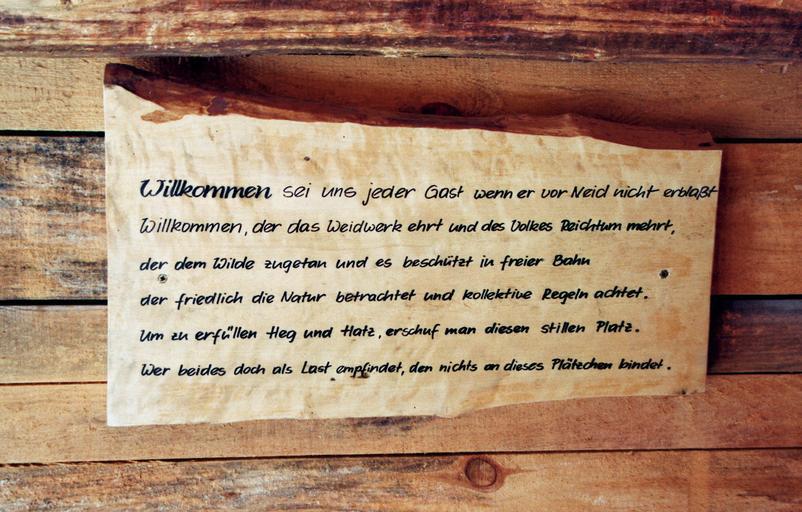 Willkommen sei uns jeder Gast wenn er vor Neid nicht erblaßt
Willkommen, der das Weidwerk ehrt und des Volkes Reichtum mehrt,
der dem Wilde zugetan und es beschützt in freier Bahn
der friedlich die Natur betrachtet und kollektive Regeln achtet.
Um zu erfüllen Heg und Hatz, erschuf man diesen stillen Platz.
Wer beides doch als Last empfindet, den nichts an dieses Plätzchen bindet.